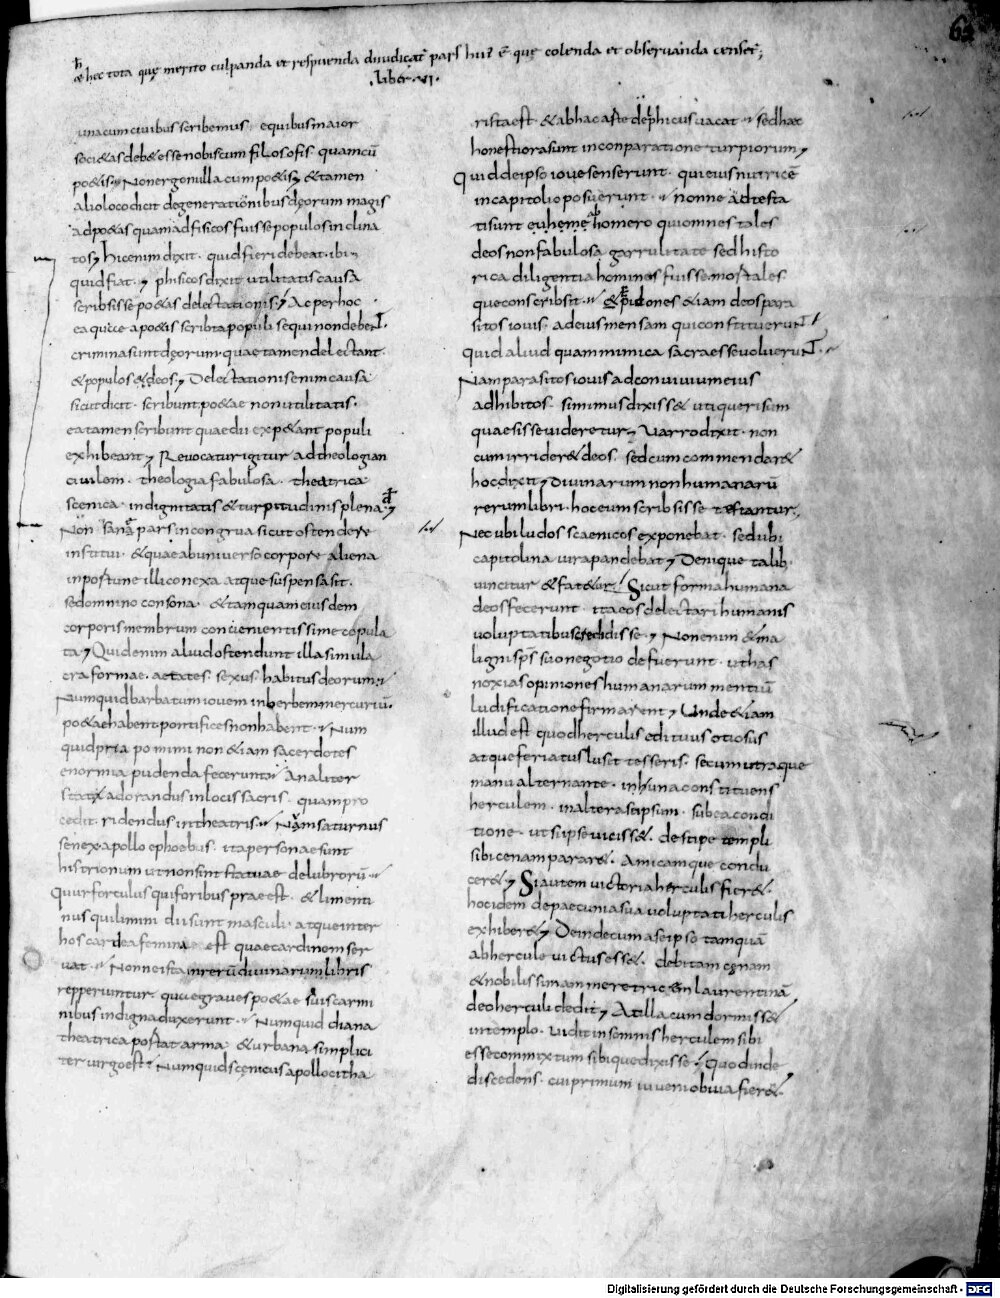 64
h
ęc hec tota quę merito culpanda et respuenda diiudicat pars hui' ē quę colenda et observanda censet;
.liber .vi.
unacumcivibus scribemus. equibusmaior
soci&as deb& esse nobiscum filosofis. quamcū
po&is. Nonergonulla cum po&is & tamen
alioloco dicit degenerationibus deorum magis
adpo&as quamadfisicos fuisse populos inclina
tos Hicenim dixit. quid fieri debeat. ibi
quid fiat. phisicos dixit utilitatis causa
scribsisse po&as delectationis. Acperhoc
ea quae apo&is scribta populi sequi non debent.
crimina sunt deorum. quae tamen delectant.
& populos & deos. Delectationis enim causa
sicut dicit. scribunt po&ae non utilitatis.
ea tamen scribunt quae dii exp&ant populi
exhibeant Revocatur igitur ad theologian
civilem. theologia fabulosa. theatrica
scenica. indignitatis & turpitudinis plena.
Non sana pars incongrua sicut ostendere
institui. & quae ab universo corpore aliena
inportune illi conexa atque suspensa sit.
sed omnino consona. & tamquam eiusdem
corporis membrum convenientissime copula
ta Quid enim aliud ostendunt illa simula
cra formae. aetates. sexus. habitus deorum.
Numquid barbatum iovem inberbem mercuriū.
po&ae habent pontifices non habent. Num
quid pria po mimi non &iam sacerdotes
enormia pudenda fecerunt. An aliter
stat adorandus in locis sacris. quam pro
cedit. ridendus in theatris. Nam saturnus
senex apollo ephoebus. ita personae sunt
histrionum ut non sint statuae delubrorū
Quur forculus qui foribus prae est. & limenti
nus qui limini dii sunt masculi. atque inter
hos cardea femina est quae cardinem ser
vat. Nonne ista in rerū divinarum libris
repperiuntur. quae graves po&ae suis carmi
nibus indigna duxerunt. Numquid diana
theatrica portat arma. & urbana simplici
ter virgo est. Numquid scenicus apollo citha
rista est. & ab hac aste delphicus vacat. sed haec
honestiora sunt in conparatione turpiorum
Quid de ipso iove senserunt. qui eius nutrice
in capitolio posuerunt. nonne adtesta
ti sunt euhemero qui omnes tales
deos non fabulosa garrulitate sed histo
rica diligentia homines fuisse mortales
que conscribsit. & pulones &iam deos para
sitos iovis. ad eius mensam qui constituerunt.
Quid aliud quam mimica sacra esse voluerunt.
Nam parasitos iovis ad convivium eius
adhibitos. si mimus dixiss& uti que risum
quaesisse videretur Varro dixit. non
cum irrider& deos. sed cum commendar&
hoc dixit Divinarum non humanarū
rerum libri. hoc eum scribsisse testantur.
Nec ubi ludos scaenicos exponebat. sed ubi
capitolina iura pandebat Denique talib.
vincitur & fat&ur. Sicut forma humana
deos fecerunt. ita eos delectari humanis
voluptatibus credidisse. Non enim & ma
ligni sp̄s suo negotio defuerunt. ut has
noxias opiniones humanarum mentiū
ludificatione firmarent Unde &iam
illud est quod herculis edituus otiosus
atque feriatus lusit tesseris. secum utraque
manu alternante. in huna constituens
herculem. in altera se ipsum. sub ea condi
tione. ut si ipse viciss&. de stipe templi
sibi cenam parar&. Amicamque condu
cer&. Si autem victoria herculis fier&.
hoc idem de paecunia sua voluptati herculis
exhiber& Deinde cum a se ipso tamquā
ab hercule victus ess&. debitam cęnam
& nobilissimam meretricem laurentinā
deo herculi dedit At illa cum dormiss&
in templo. vidit in somnis herculem sibi
esse commixtum sibique dixisse. Quod inde
discedens. cui primum iuveni obvia fier&.
Digitalisierung gefördert durch die Deutsche Forschungsgemeinschaft - DFG